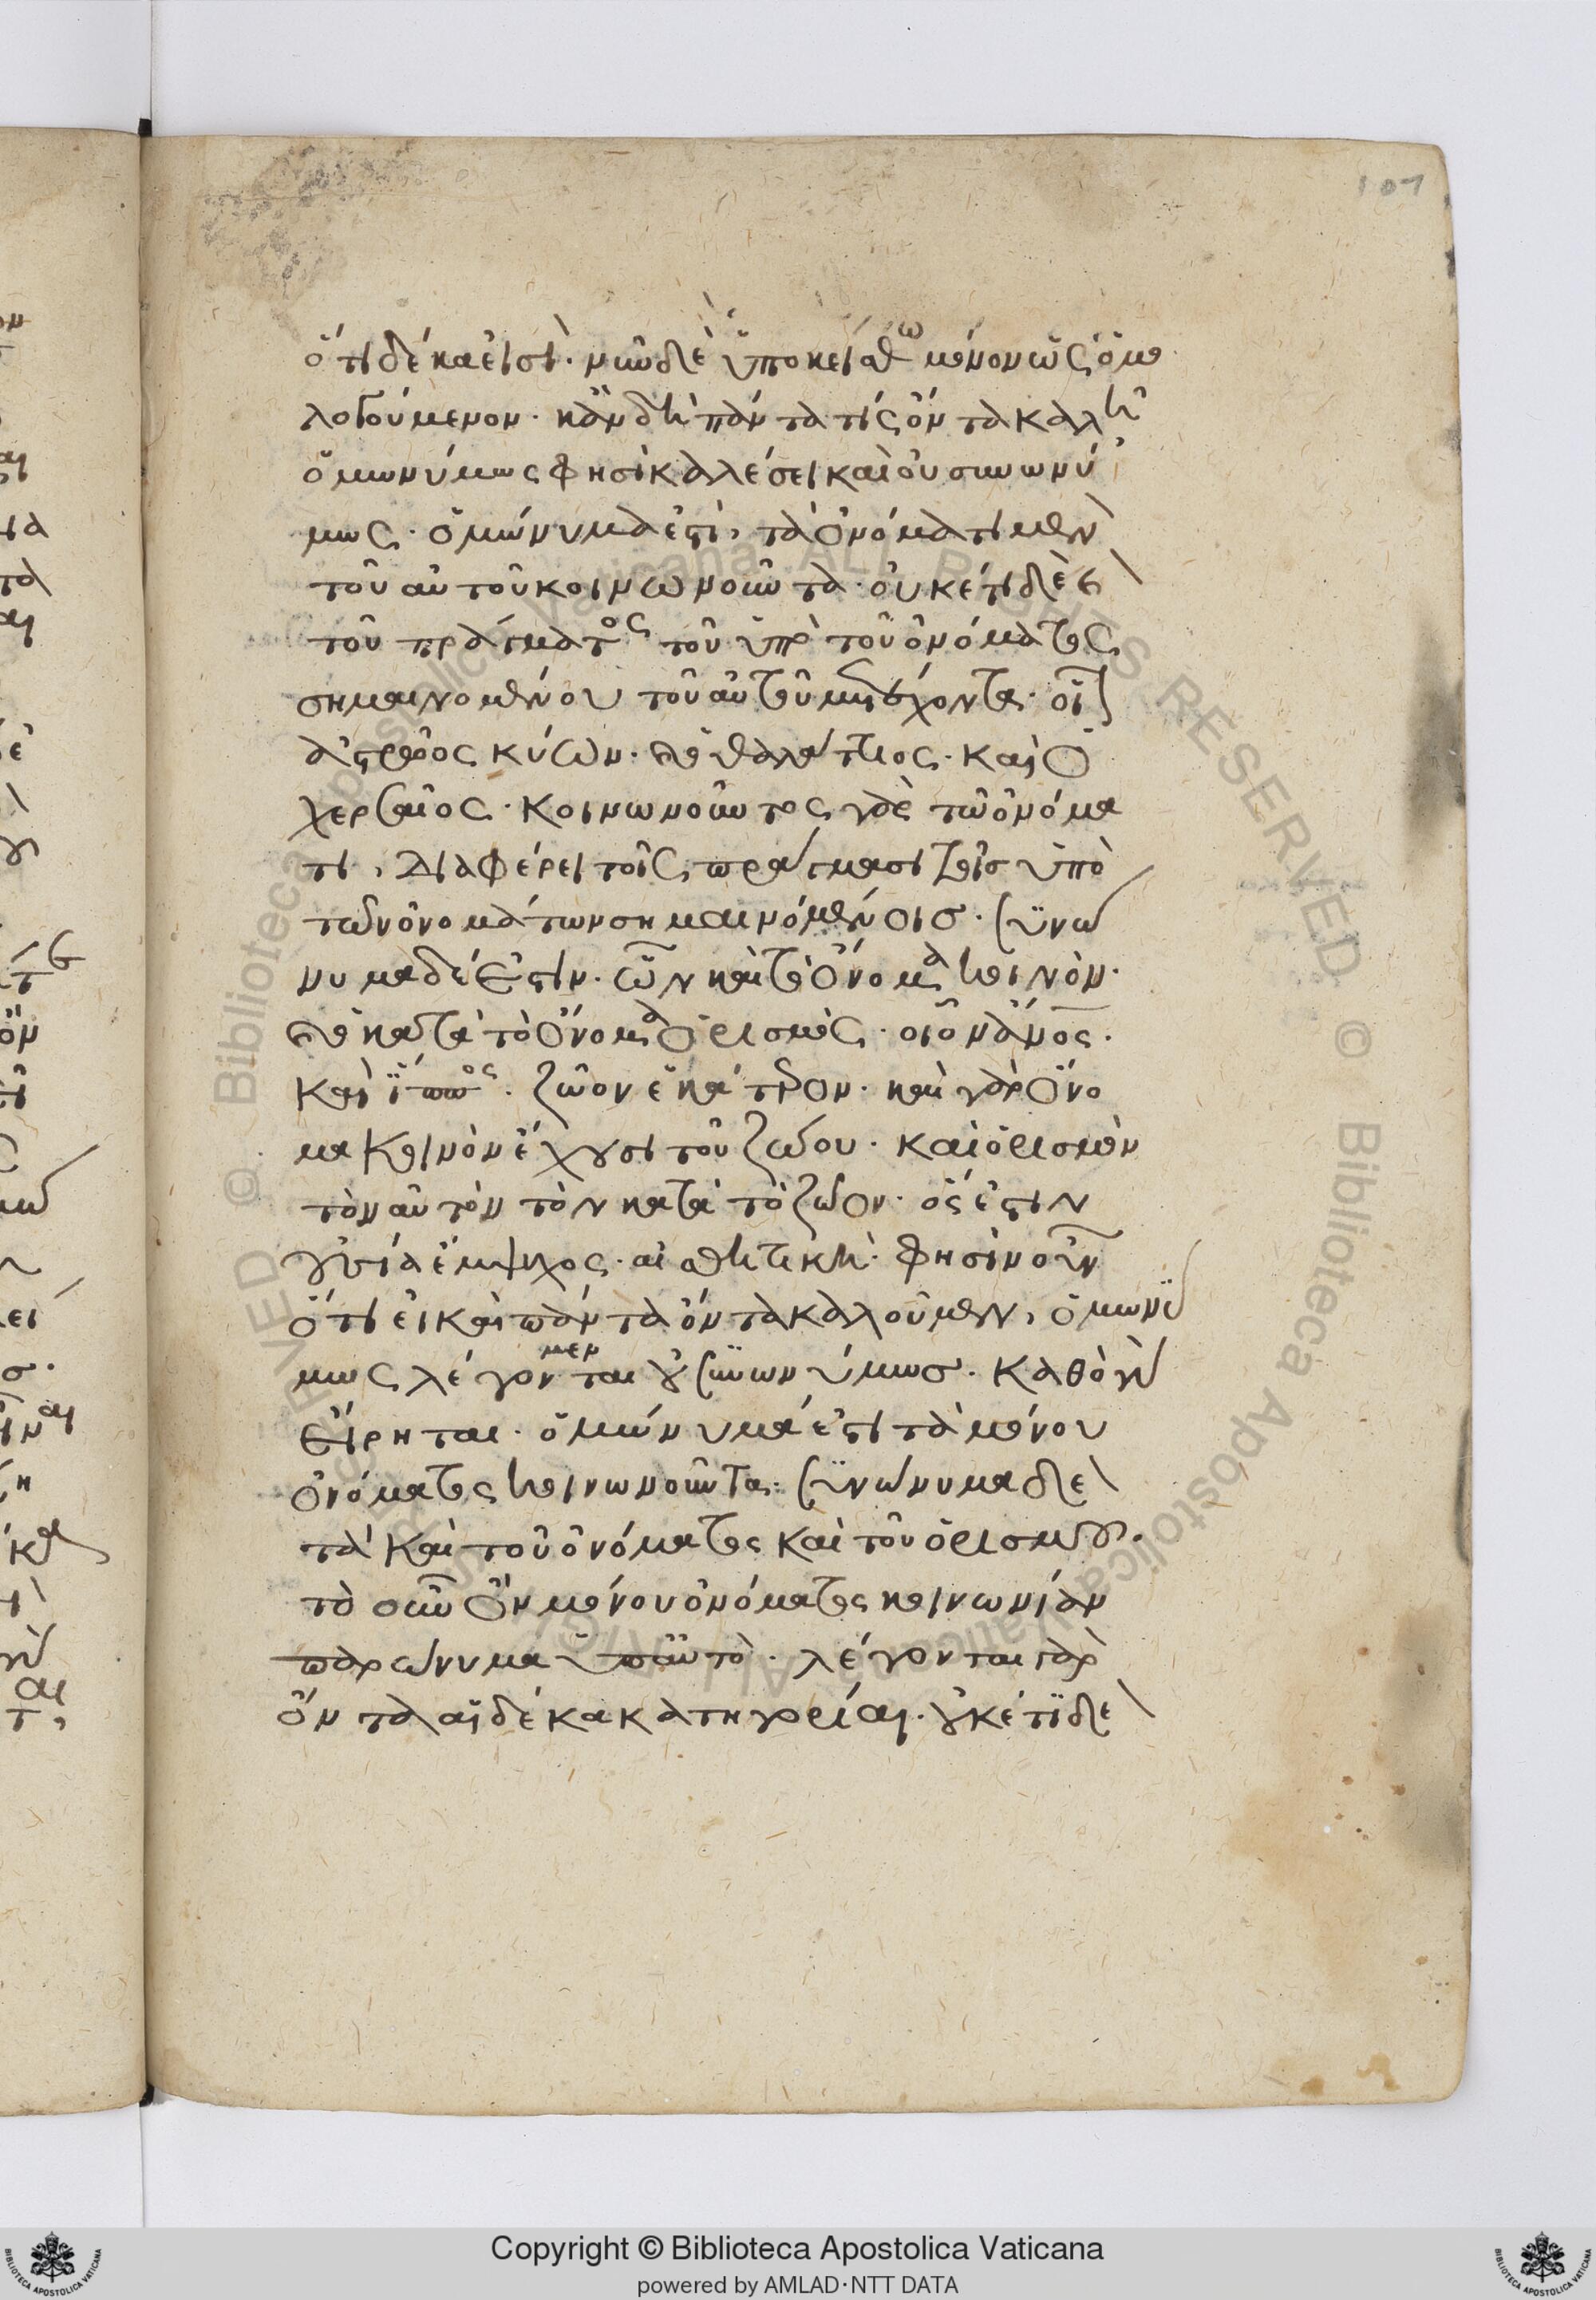 107
ὅτι δέκα εἰσί· νῦν δὲ ὑποκείσθω μόνον ὡς ὁμο
λογούμενον· κἂν δὴ πάντα τίς ὄντα καλῆ
ὁμωνύμως φησὶ καλέσει καὶ οὐ συνωνύ
μως. ὁμώνυμα ἐστὶ, τὰ ὀνόματι μὲν
τοῦ αὐτοῦ κοινωνοῦντα· οὐκέτι δὲ ἐ
τοῦ πράγματος τοῦ ὑπὸ τοῦ ὀνόματος
σημαινομένου τοῦ αὐτοῦ μετέχοντα· οἷον
ἀστρῶος κύων· καὶ ὁ θαλάττιος· καὶ ὁ
χερσαῖος· κοινωνοῦντες γὰρ τῶ ὀνόμα
τι, διαφέρει τοῖς πράγμασι τοῖς ὑπὸ
τῶν ὀνομάτων σημαινόμένοις. συνώ
νυμα δέ ἐστιν. ὧν καὶ τὸ ὄνομα κοινὸν·
καὶ ὁ κατὰ τὸ ὄνομα ὁρισμὸς· οἷον ἄνος.
καὶ ἵππος. ζῶον ἑκάτερον· καὶ γὰρ ὄνο
μα κοινὸν ἔχουσι τοῦ ζώου· καὶ ὁρισμὸν
τὸν αὐτὸν τὸν κατὰ τὸ ζῶον· ὅς ἐστιν
οὐσία ἔμψυχος· αἰσθητική· φησὶν οὖν
ὅτι εἰ καὶ πάντα ὄντα καλοῦμεν, ὁμωνύ
μως λέγονται μεν οὐ συνωνύμως. καθὸ γὰρ
εἴρηται· ὁμώνυμά ἐστι τὰ μόνου
ὀνόματος κοινωνοῦντα· συνώνυμα δὲ
τὰ καὶ τοῦ ὀνόματος καὶ τοῦ ὁρισμοῦ.
τὸ οὖν ὂν μόνου ὀνόματος κοινωνίαν
παρώνυμα ὑπ' αὐτὸ. λέγονται γὰρ
ὄντα αἱ δέκα κατηγορίαι. οὐκέτι δὲ
Copyright © Biblioteca Apostolica Vaticana
powered by AMLAD·NTT DATA